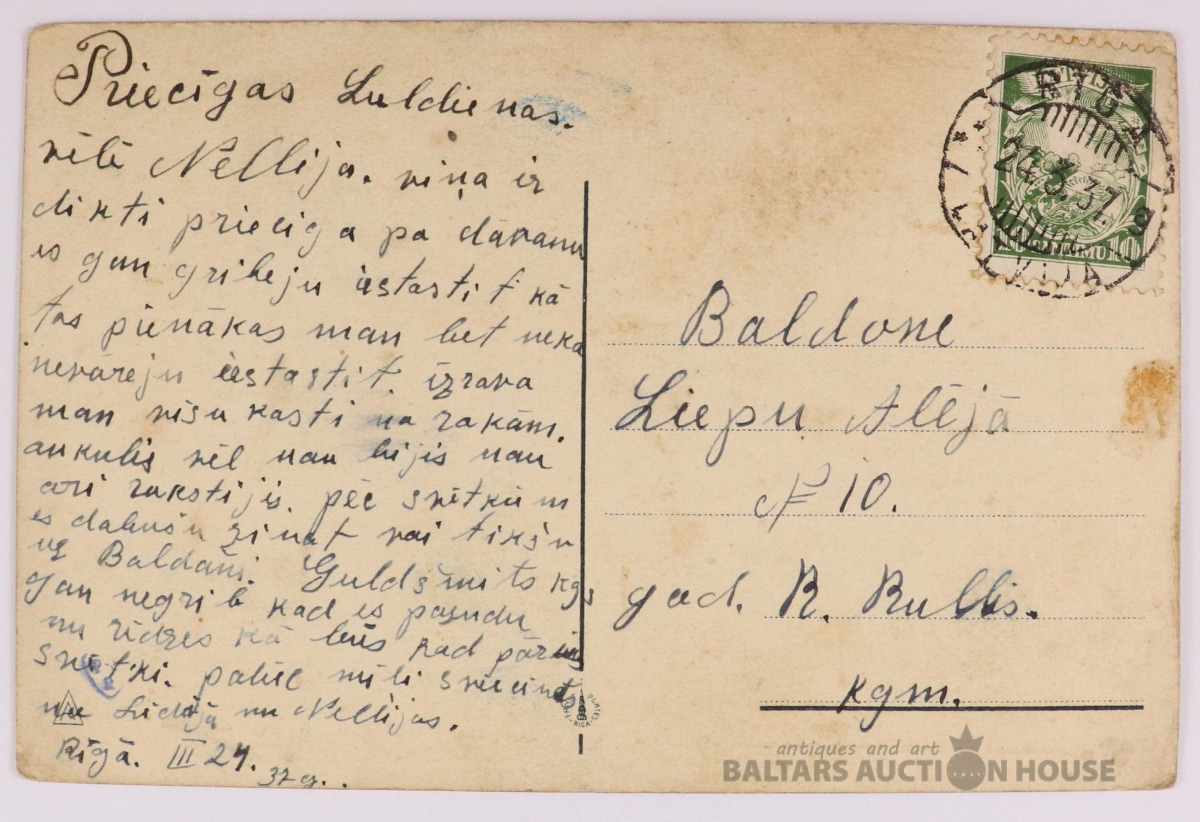 Priecīgas Luldienas.
vēlē Nellija. viņa ir
dikti priecīga pa dāvanu
es gan gribēju iestastit kā
tas pienākas man bet neka
nevarēju iestastit. izrava
man visu kasti na rakām.
ankulis vēl nau bijis nau
ari rakstijis. pēc svētkūm
es dabušu zinat vai tikšu
uz Baldani. Guldšmits kgs
gan negrib kad es pasudu
nu ridzes kā būs kad pāries
svētki. paliec mīli sveicinat
nu Lidija nu Nellijas.
Rīgā. III 24. 37 g.
LATVIJA
10 SANTIMU 10
RIGA
24.3.37. 9
LATVIJA
Baldone
Liepu Alējā
№ 10.
god. R. Rullis.
kgm.
antiques and art
BALTARS AUCTION HOUSE